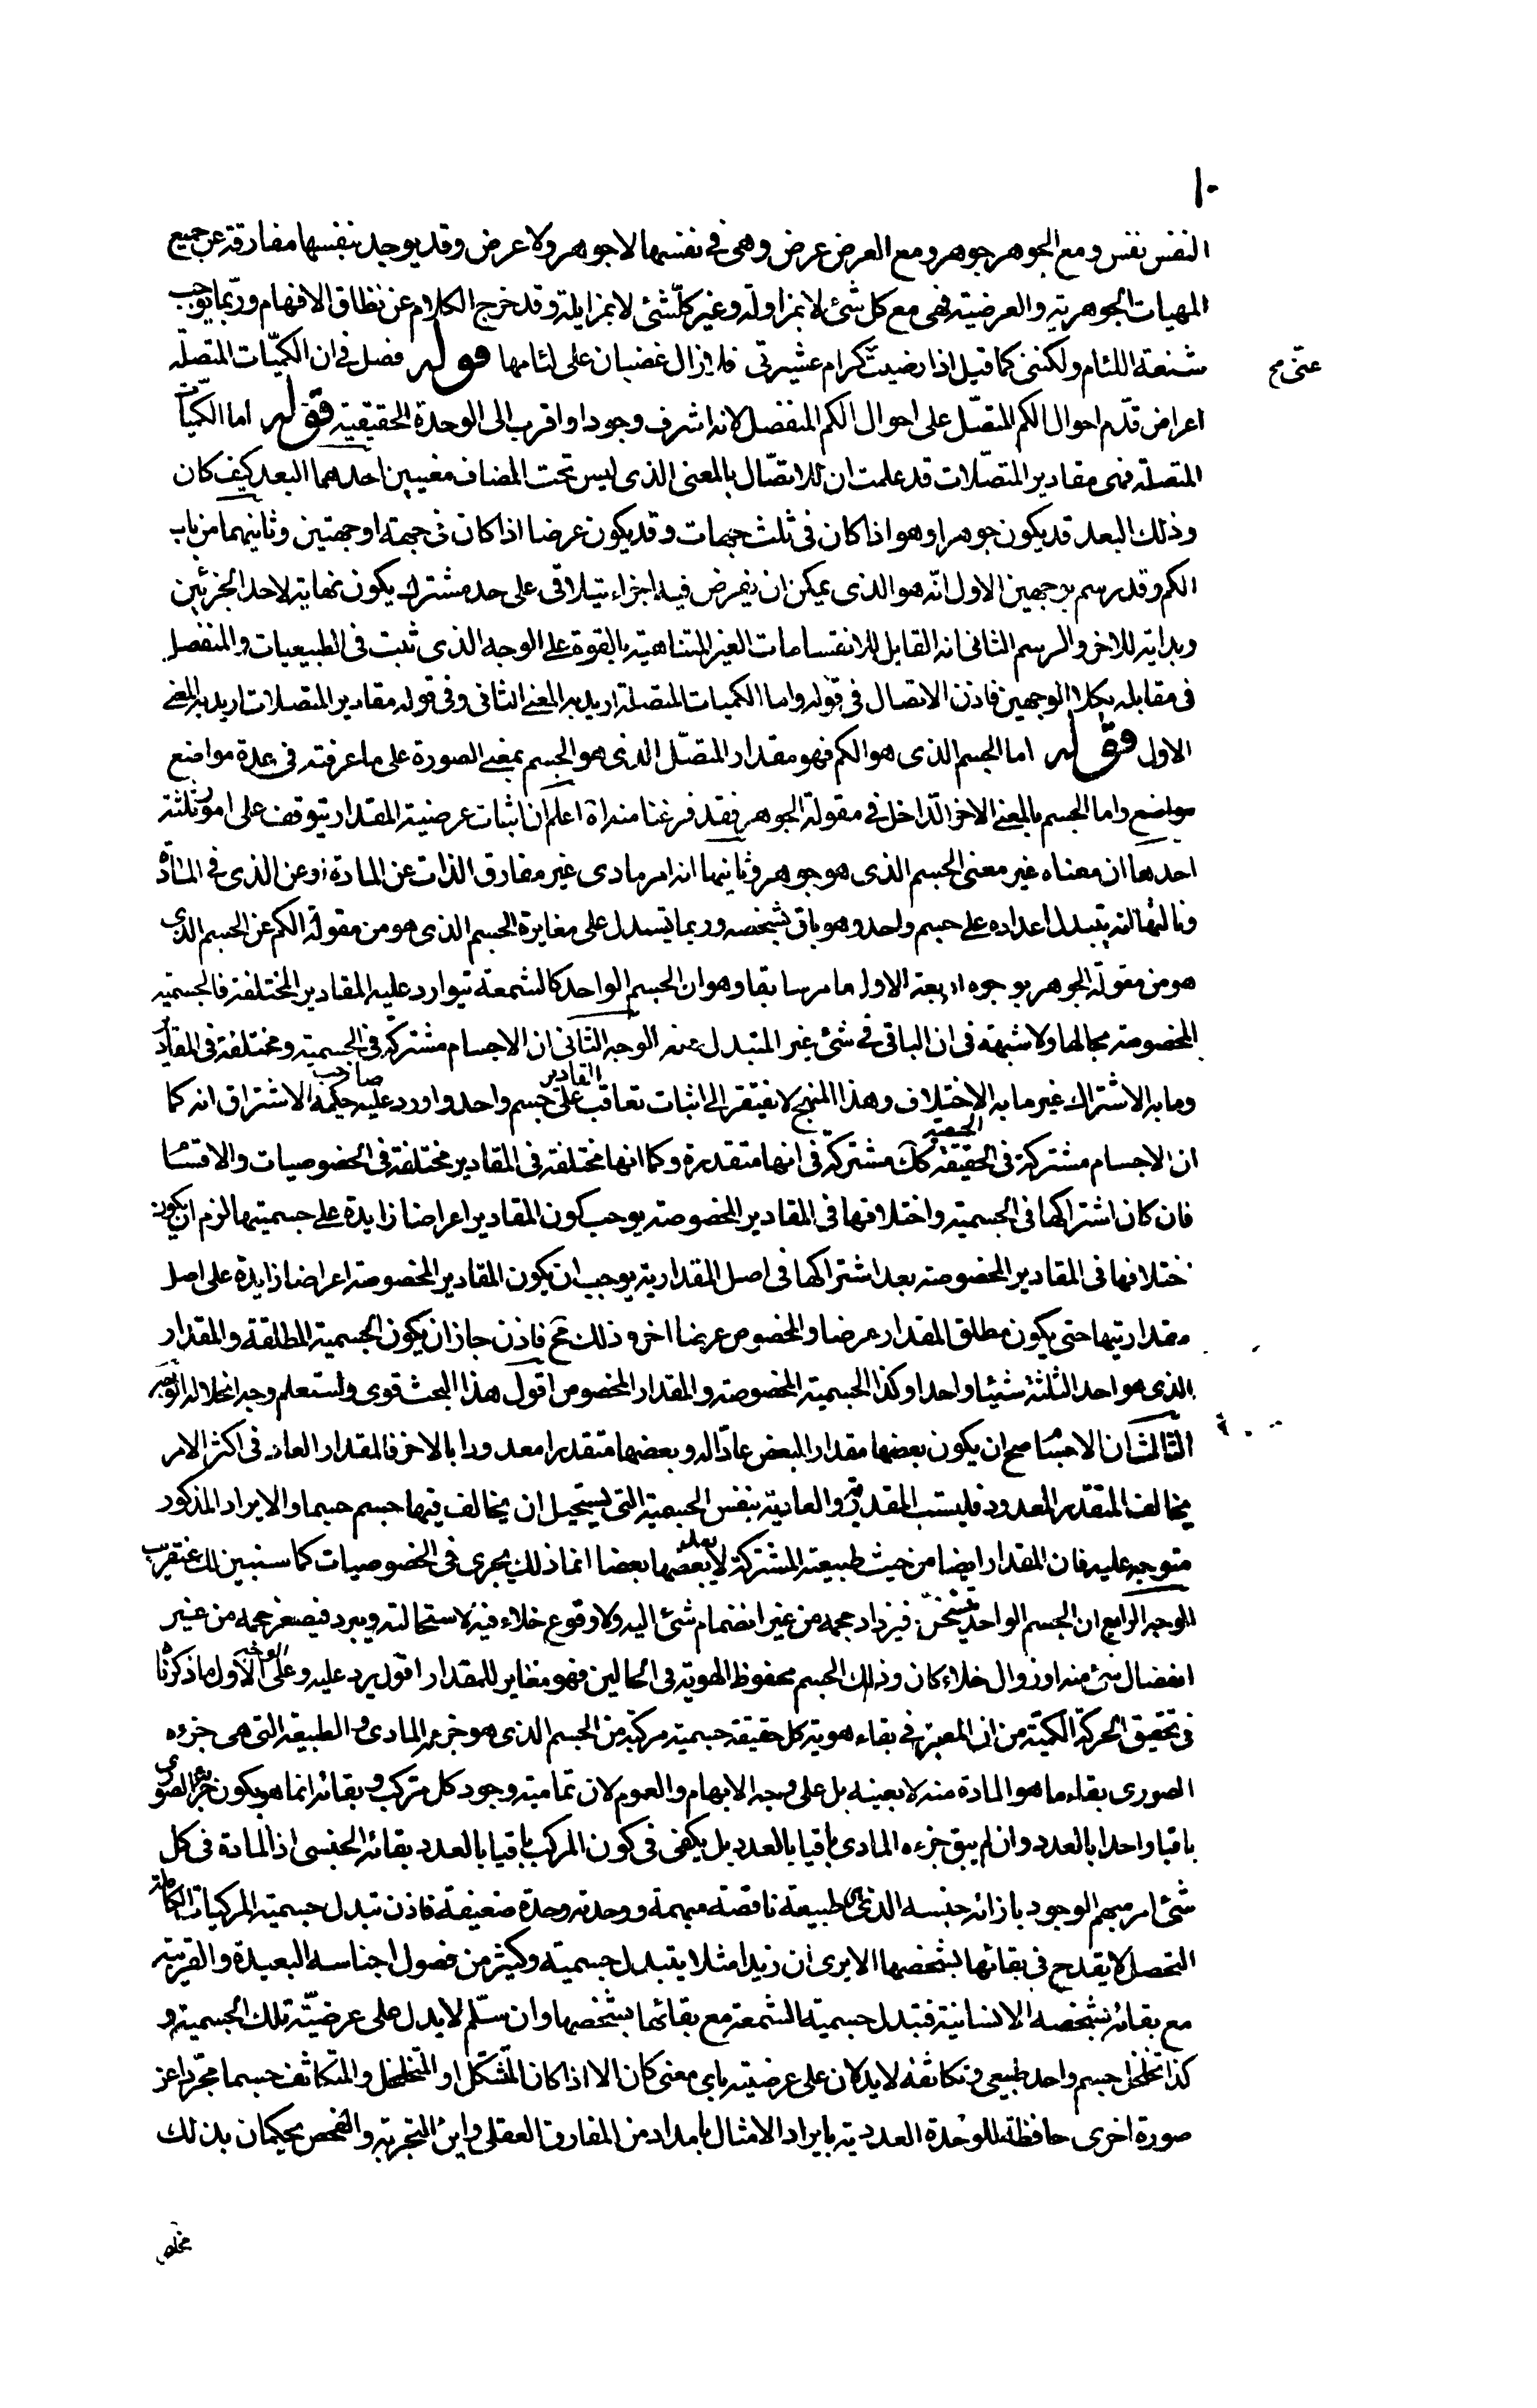 ١٠
النفس نفس ومع الجوهر جوهر ومع العرض عرض وهى فى نفسها لا جوهر ولا عرض وقد يوجد بنفسها مفارقة عن جميع
المهيات الجوهرية والعرضية فهى مع كل شئ لا بمزاولة وغير كلّ شئ لا بمزايلة وقد خرج الكلام عن نطاق الافهام وربّما يوجب
شنعة اللئام ولكننى كما قيل اذا رضيت كرام عشيرتى فلا يزال غضبان على لئامها قوله فصل فى ان الكميّات المتصلة
عنّى صح
اعراض قدّم احوال الكم المتصّل على احوال الكم المنفصل لانه اشرف وجودا واقرب الى الوحدة الحقيقية قوله اما الكميّات
المتصلة فهى مقادير المتصّلات قد علمت ان للاتصّال بالمعنى الذى ليس تحت المضاف معنيين احدهما البعد كيف كان
وذلك البعد قد يكون جوهرا وهو اذا كان فى ثلث جهات وقد يكون عرضا اذا كان فى جهة او جهتين وثانيهما من باب
الكم وقد رسم بوجهين الاول انّه هو الذى يمكن ان يفرض فيه اجزاء يتلاقى على حد مشترك يكون نهاية لاحد الجزئين
وبداية للاخر والرسم الثانى انه القابل للانقسامات الغير المتناهية بالقوة على الوجه الذى ثبت فى الطبيعيات والمنفصل
فى مقابله بكلا الوجهين فاذن الاتصال فى قوله واما الكميات المتصلة اريد به المعنى الثانى وفى قوله مقادير المتصلات اريد به المعنى
الاول قوله اما الجسم الذى هو الكم فهو مقدار المتصّل الذى هو الجسم بمعنى الصورة على ما عرفته فى عدة مواضع
مواضع واما الجسم بالمعنى الاخر الدّاخل فى مقولة الجوهر فقد فرغنا منه اه اعلم ان اثبات عرضية المقدار يتوقف على امور ثلثة
احدها ان معناه غير معنى الجسم الذى هو جوهر وثانيها انه امر مادى غير مفارق الذات عن المادة او عن الذى فى المادّة
وثالثها انه يتبدل اعداده على جسم واحد وهو باق بشخصه وربما يستدل على مغايرة الجسم الذى هو من مقولة الكم عن الجسم الذى
هو من مقولة الجوهر بوجوه اربعة الاول ما مر سابقا وهو ان الجسم الواحد كالشمعة يتوارد عليه المقادير المختلفة فالجسمية
المخصوصة بحالها ولا شبهة فى ان الباقى فى شئ غير المتبدل عنه الوجه الثانى ان الاجسام مشتركة فى الجسمية ومختلفة فى المقادير
وما به الاشتراك غير ما به الاختلاف وهذا المنهج لا يفتقر الى اثبات تعاقب المقادير على جسم واحد واورد عليه صاحب حكمة الاشتراق انه كما
ان الاجسام مشتركة فى الحقيقة الجسمية كك مشتركة فى انها متقدرة وكما انها مختلفة فى المقادير مختلفة فى الخصوصيات والاقسام
فان كان اشتراكها فى الجسمية واختلافها فى المقادير المخصوصة يوجب كون المقادير اعراضا زايدة على جسميتها لزم ان يكون
ختلافها فى المقادير المخصوصة بعد اشتراكها فى اصل المقدارية يوجب ان يكون المقادير المخصوصة اعراضا زايدة على اصل
مقداريتها حتى يكون مطلق المقدار عرضا والمخصوص عرضا اخر وذلك مح فاذن جاز ان يكون الجسمية المطلقة والمقدار
الذى هو احد الثلثة شيئا واحدا وكذا الجسمية المخصوصة والمقدار المخصوص اقول هذا البحث قوى واستعلم وجه انحلاله الوجه
الثالث ان الاجسام صح ان يكون بعضها مقدار البعض عادّا له وبعضها متقدرا معدودا بالاخر فالمقدار العاد فى اكثر الامر
يخالف المتقدر المعدود فليست المقدرية والعادية بنفس الجسمية التى يستحيل ان يخالف فيها جسم جسما والايراد المذكور
متوجه عليه فان المقدار ايضا من حيث طبيعته المشتركة لا يعد بعضها بعضا انما ذلك يجرى فى الخصوصيات كما سنبين لك عنقريب
الوجه الرابع ان الجسم الواحد يتسخّن فيزداد حجمه من غير انضمام شئ اليه ولا وقوع خلاء فيه لاستحالته ويبرد فيصغر حجمه من غير
انفصال شئ منه او زوال خلاء كان وذلك الجسم محفوظ الهوية فى الحالين فهو مغاير للمقدار اقول يرد عليه وعلى الوجه الاول ما ذكرناه
فى تحقيق الحركة الكميّة من ان المعبر فى بقاء هوية كل حقيقة جسمية مركبّة من الجسم الذى هو جزءه المادى والطبيعة التى هى جزءه
الصورى بقاء ما هو المادة منه لا بعينه بل على وجه الابهام والعموم لان تمامية وجود كل مركب وبقائه انما هو يكون جزئه الصورى
باقيا واحدا بالعدد وان لم يبق جزءه المادى باقيا بالعدد بل يكفى فى كون المركب باقيا بالعدد بقائه الجنسى اذ المادة فى كل
شئ امر مبهم الوجود بازائه جنسه الذى طبيعة ناقصة مبهمة ووحدته وحدة ضعيفة فاذن تبدل جسمية المركبات الكاملة
التحصل لا يقدح فى بقائها بشخصها الا يرى ان زيدا مثلا يتبدل جسميته وكثير من فصول اجناسه البعيدة والقريبة
مع بقائه بشخصه الانسانية فتبدل جسمية الشمعة مع بقائها بشخصها وان سلّم لا يدل على عرضيّة تلك الجسمية و
كذا تخلخل جسم واحد طبيعى وتكاثفه لا يدلان على عرضيته باى معنى كان الا اذا كان المتشكّل او المتخلخل والمتكاثف جسما مجّردا عن
صورة اخرى حافظة للوحدة العددية بايراد الامثال بامداد من المفارق العقلى واين التجربة والفحص يحكمان بذلك